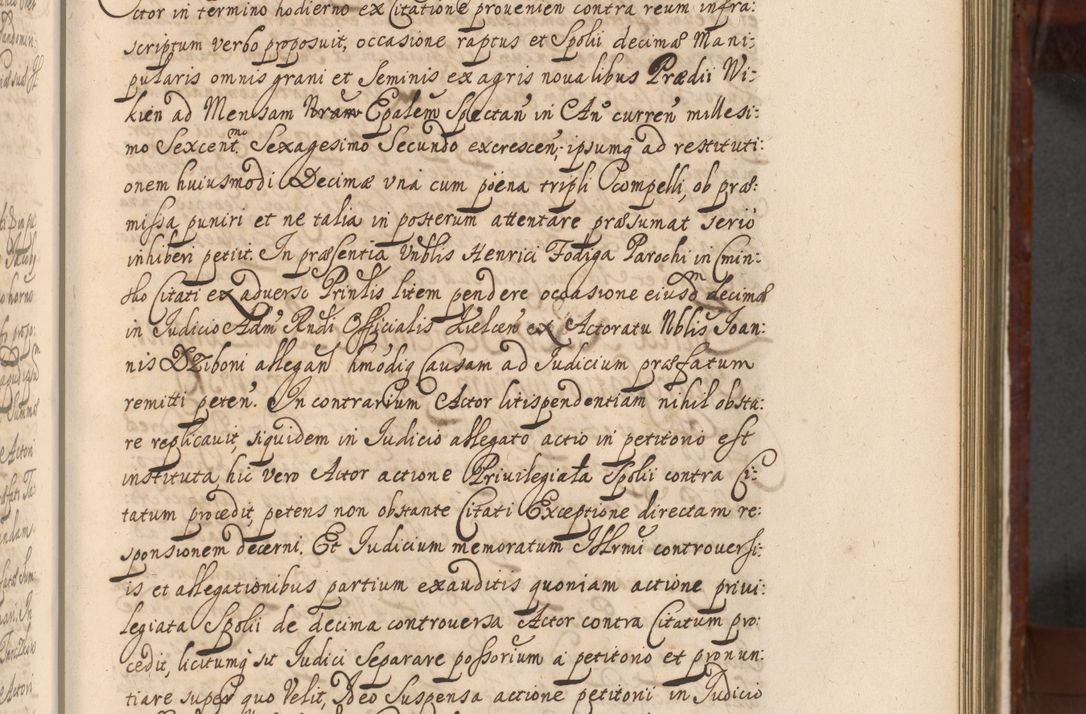 ctor in termino hodierno ex Citatione provenien contra reum infra:
scriptum verbo proposuit, occasione raptus et Spolii decimæ Mani:
pularis omnis grani et Seminis ex agris novalibus Prædii Wi:
kien ad Mensam Nram Epalem Spectan in An curren millesi:
mo Sexcentmo Sexagesimo Secundo excrescen, ipsumq ad restituti:
onem huiusmodi Decimæ una cum pœna tripli compelli, ob præ:
missa puniri et ne talia in posterum attentare præsumat serio
inhiberi petiit. In præsentia Vnblis Henrici Fodiga Parochi in Cmin:
sko Citati ex adverso Prinlis litem pendere occasione eiusdm decimæ
in Iudicio Adm Rndi Officialis Kielcen ex Actoratu Nblis Ioan:
nis Dziboni allegan hmodiq Causam ad Iudicium præfatum
remitti peten. In contrarium Actor litispendentiam nihil obsta:
re replicavit, siquidem in Iudicio allegato actio in petitorio est
instituta, hic vero Actor actione Privilegiata Spolii contra Ci:
tatum procedit, petens non obstante Citati Exceptione directam re:
sponsionem decerni. Et Iudicium memoratum Illrmi controversi:
is et allegationibus partium exauditis quoniam actione privi:
legiata Spolii de decima controversa Actor contra Citatum pro:
cedit, licitumq sit Iudici Separare possorium a petitorio et pronun:
tiare super quo Velit, Ideo Suspensa actione petitorii in Iudicio